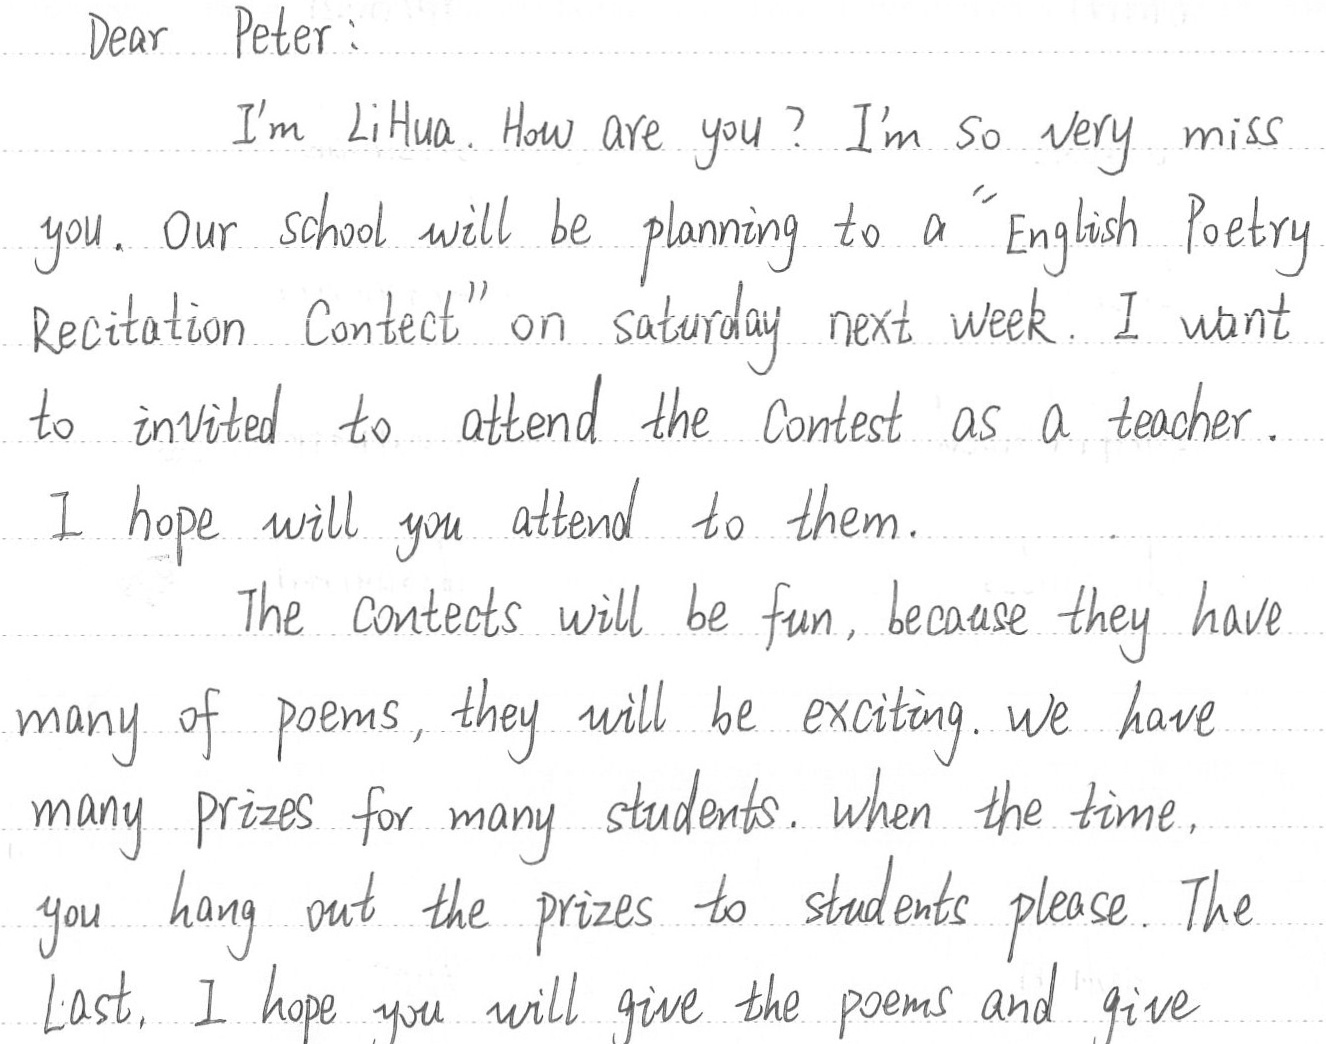 Dear Peter:
I'm LiHua. How are you? I'm so very miss
you. Our school will be planning to a "English Poetry
Recitation Contect" on saturday next week. I want
to invited to attend the Contest as a teacher.
I hope will you attend to them.
The contects will be fun, because they have
many of poems, they will be exciting. we have
many prizes for many students. when the time,
you hang out the prizes to students please. The
Last, I hope you will give the poems and give